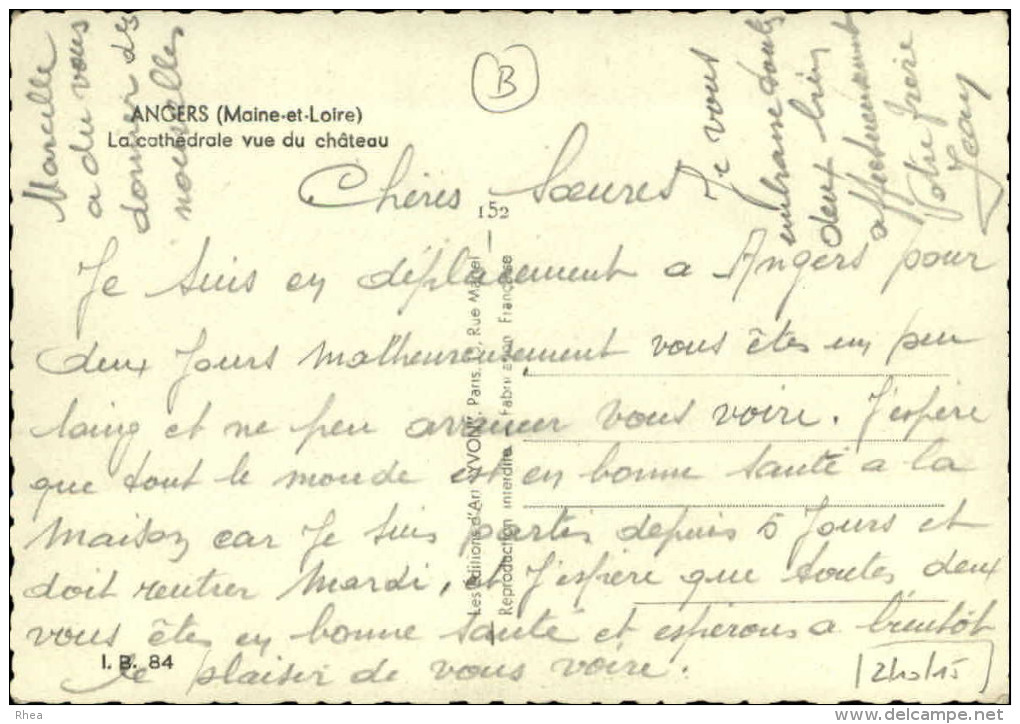 ANGERS (Maine-et-Loire)
La cathédrale vue du château
B
Chères Soeures
Je suis en déplacement a Angers pour
deux Jours malheureusement vous êtes un peu
loing et ne peu arriver vous voire. J'espère
que tout le monde est en bonne santé a la
maison car Je suis partis depuis 5 Jours et
doit rentrer Mardi, et J'espère que toutes deux
vous êtes en bonne santé et esperons a bientôt
le plaisir de vous voire.
Je vous
embrasse toutes
deux bien
affectueusement
Votre frère
Jean
Marcelle
a du vous
donner des
nouvelles
152
Les Editions d'Art "YVON", Paris, Rue Martel
Reproduction interdite Fabrication Française
I. B. 84
Rhea
http://www.delcampe.net